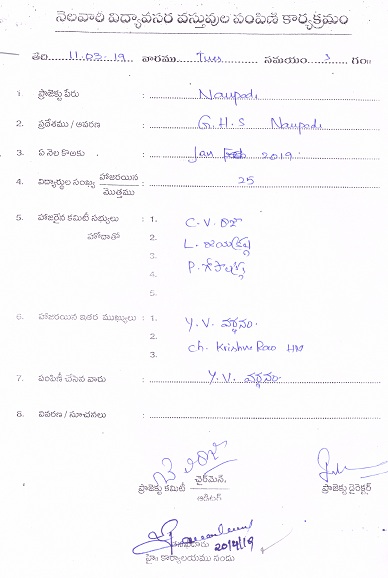 నెలవారి విద్యావసర వస్తువుల పంపిణి కార్యక్రమం
తేది 11.03.19 వారము Tues సమయం 3 గం॥
1. ప్రాజెక్టు పేరు : Naupada
2. ప్రదేశము / ఆవరణ : G.H.S Naupada
3. ఏ నెల కొఱకు : Jan Feb 2019
4. విద్యార్థుల సంఖ్య హాజరయిన / మొత్తము : 25
5. హాజరైన కమిటీ సభ్యులు : 1. C.V.
హోదాతో 2. L.
3. P.
4.
5.
6. హాజరయిన ఇతర ముఖ్యులు : 1. Y.V.
2. Ch. Krishna Rao HM
3.
7. పంపిణీ చేసిన వారు : Y.V.
8. వివరణ / సూచనలు :
ప్రాజెక్టు కమిటీ చైర్మెన్, ప్రాజెక్టు డైరెక్టర్
ఆడిటర్
20/4/19
హై॥ కార్యాలయము నందు